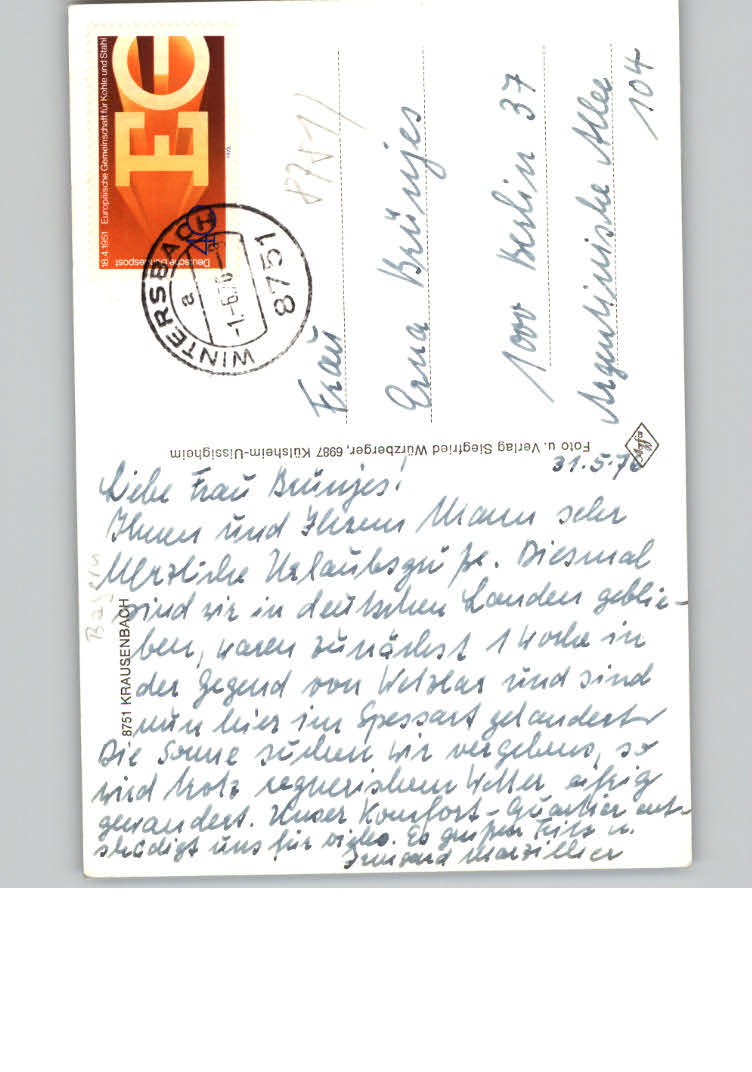 18.4.1951 Europäische Gemeinschaft für Kohle und Stahl
EG
Deutsche Bundespost
40
1976
WINTERSBACH
a
-1.-6.76
8751
8751
Frau
Erna Brünjes
1000 Berlin 37
Argentinische Allee
104
Foto u. Verlag Siegfried Würzberger, 6987 Külsheim-Uissigheim
Agfa
Bayern
8751 KRAUSENBACH
31.5.76
Liebe Frau Brünjes!
Ihnen und Ihrem Mann sehr
herzliche Urlaubsgrüße. Diesmal
sind wir in deutschen Landen geblie-
ben, waren zunächst 1 Woche in
der Gegend von Wetzlar und sind
nun hier im Spessart gelandet.
Die Sonne suchen wir vergebens, so
wird trotz regnerischem Wetter eifrig
gewandert. Unser Komfort-Quartier ent-
schädigt uns für vieles. Es grüßen Fritz u.
Irmgard Marzillier